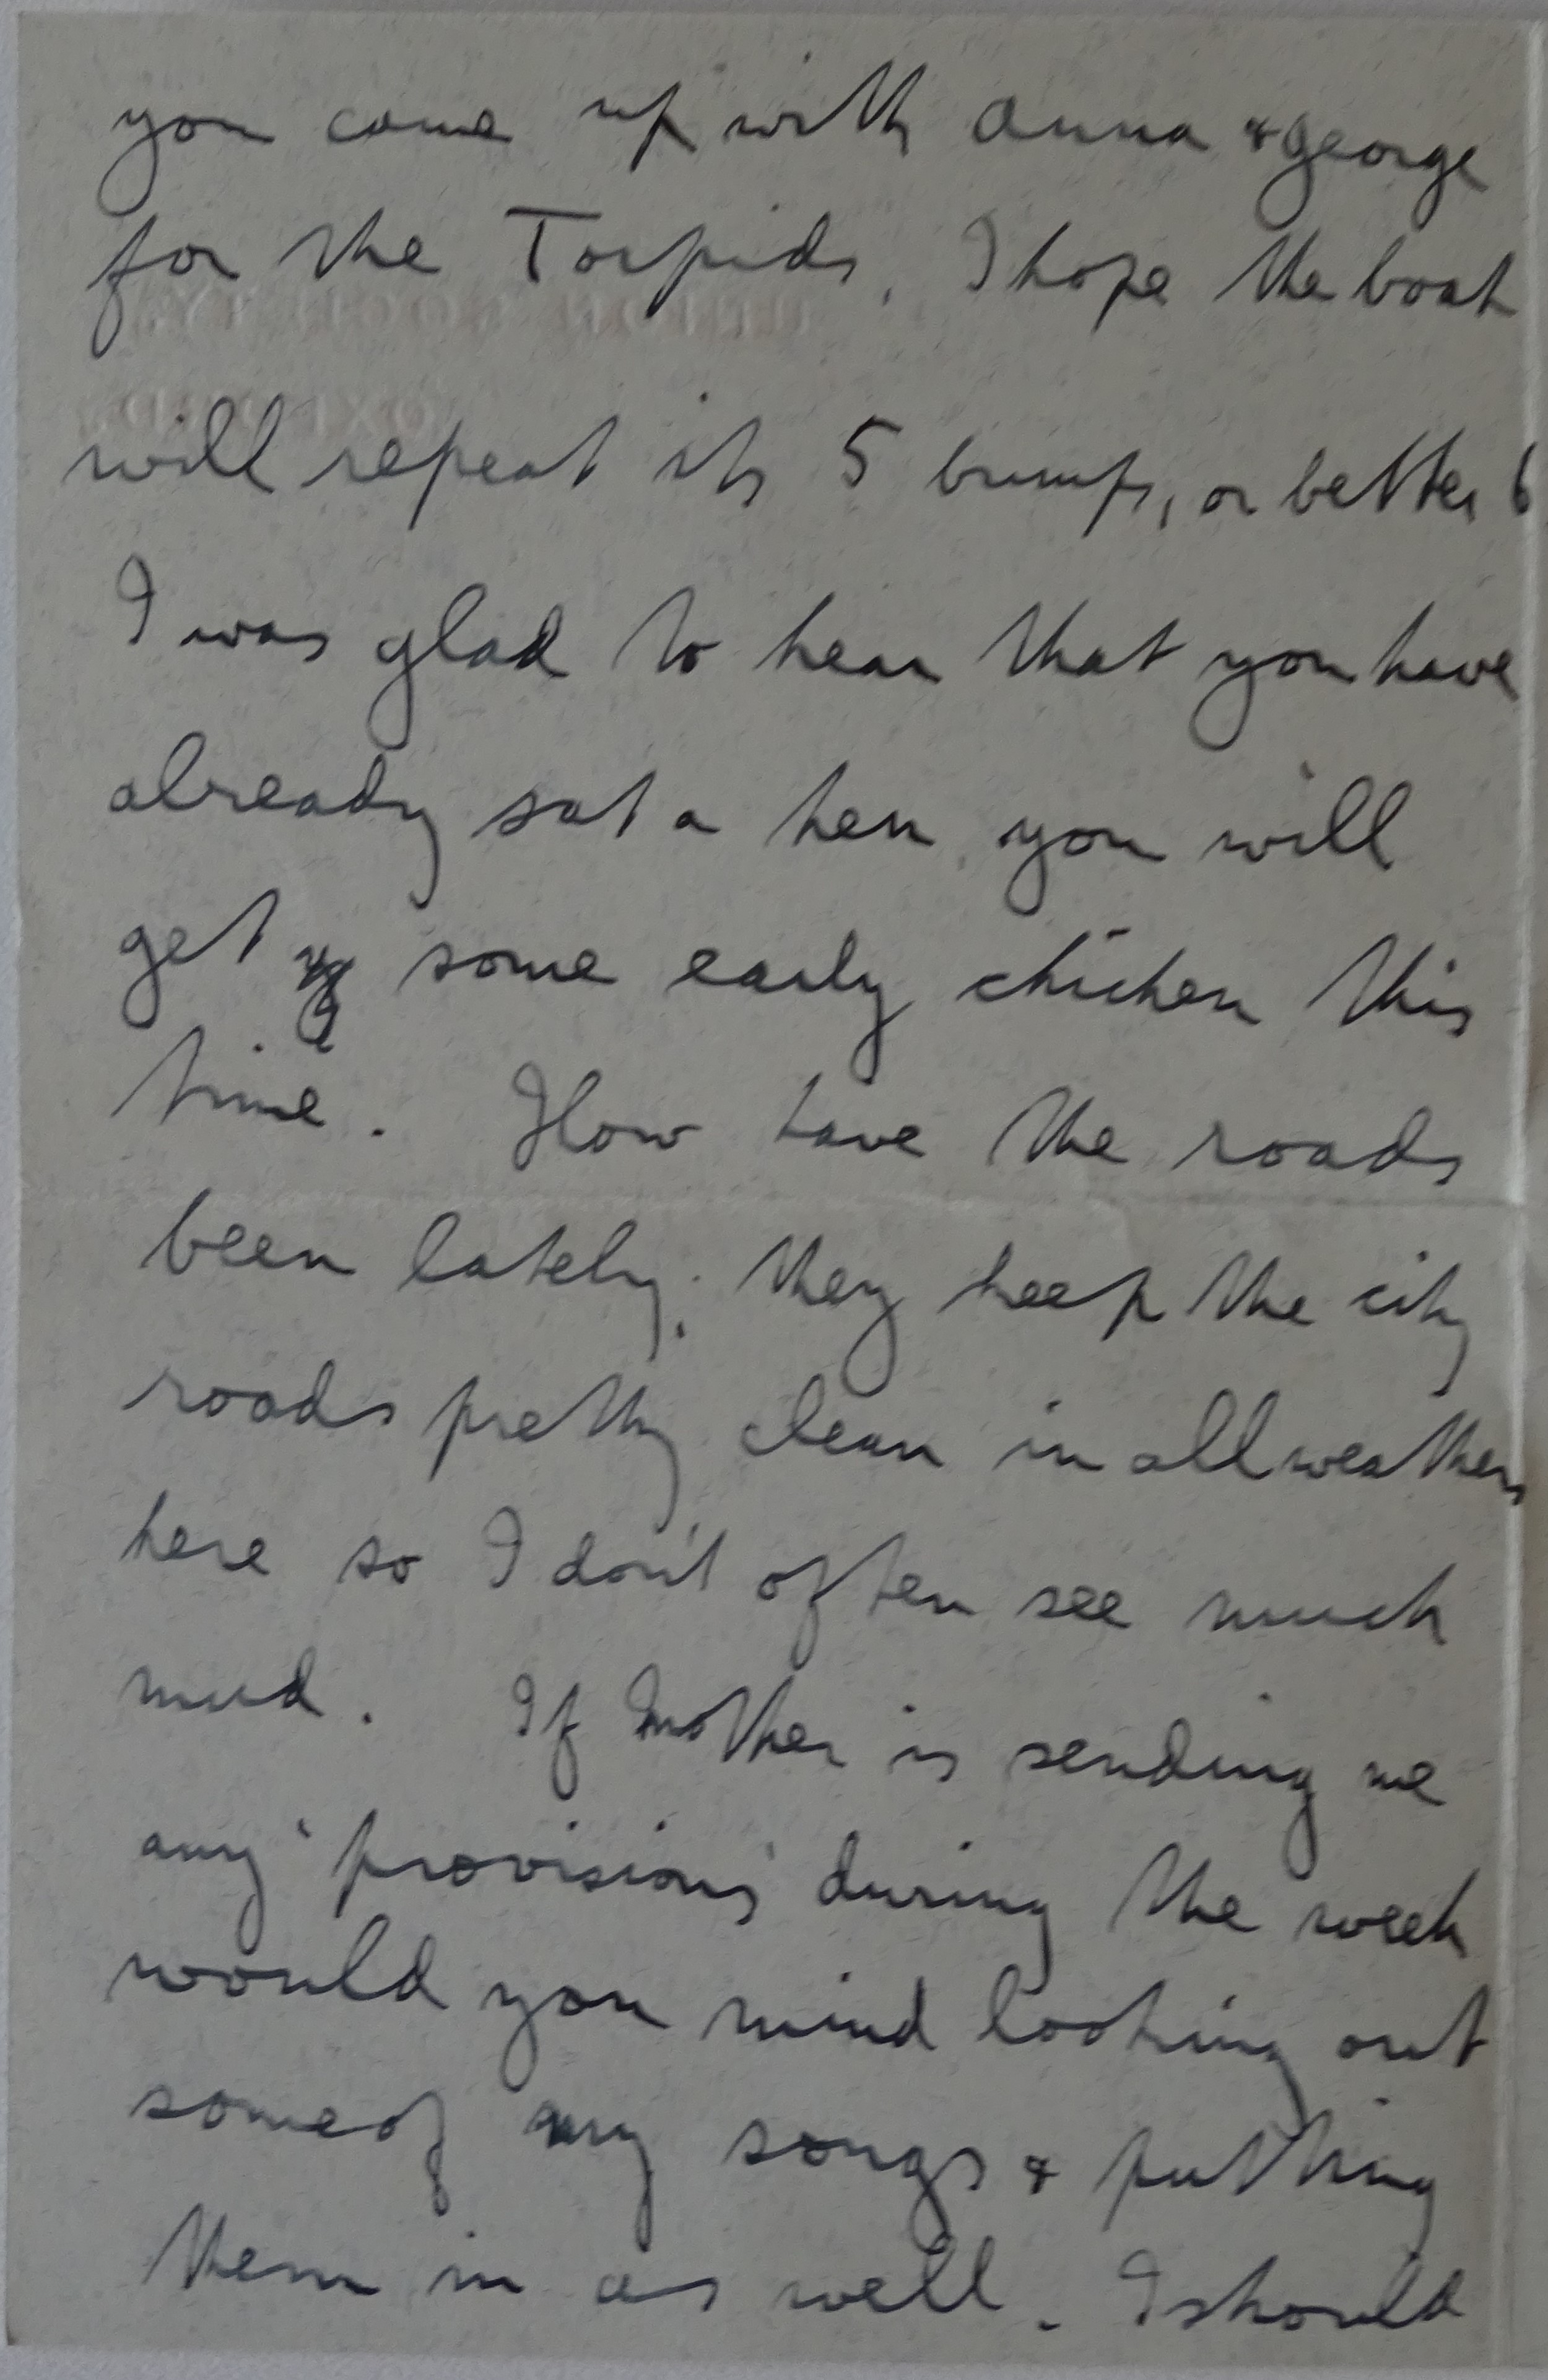 you come up with Anna & George
for the Torpids. I hope the boat
will repeat its 5 bumps, or better 6
I was glad to hear that you have
already sat a hen, you will
get some early chicken this
time. How have the roads
been lately; they keep the city
roads pretty clean in all weathers
here so I don't often see much
mud. If Mother is sending me
any 'provisions' during the week
would you mind looking out
some of my songs & putting
them in as well. I should